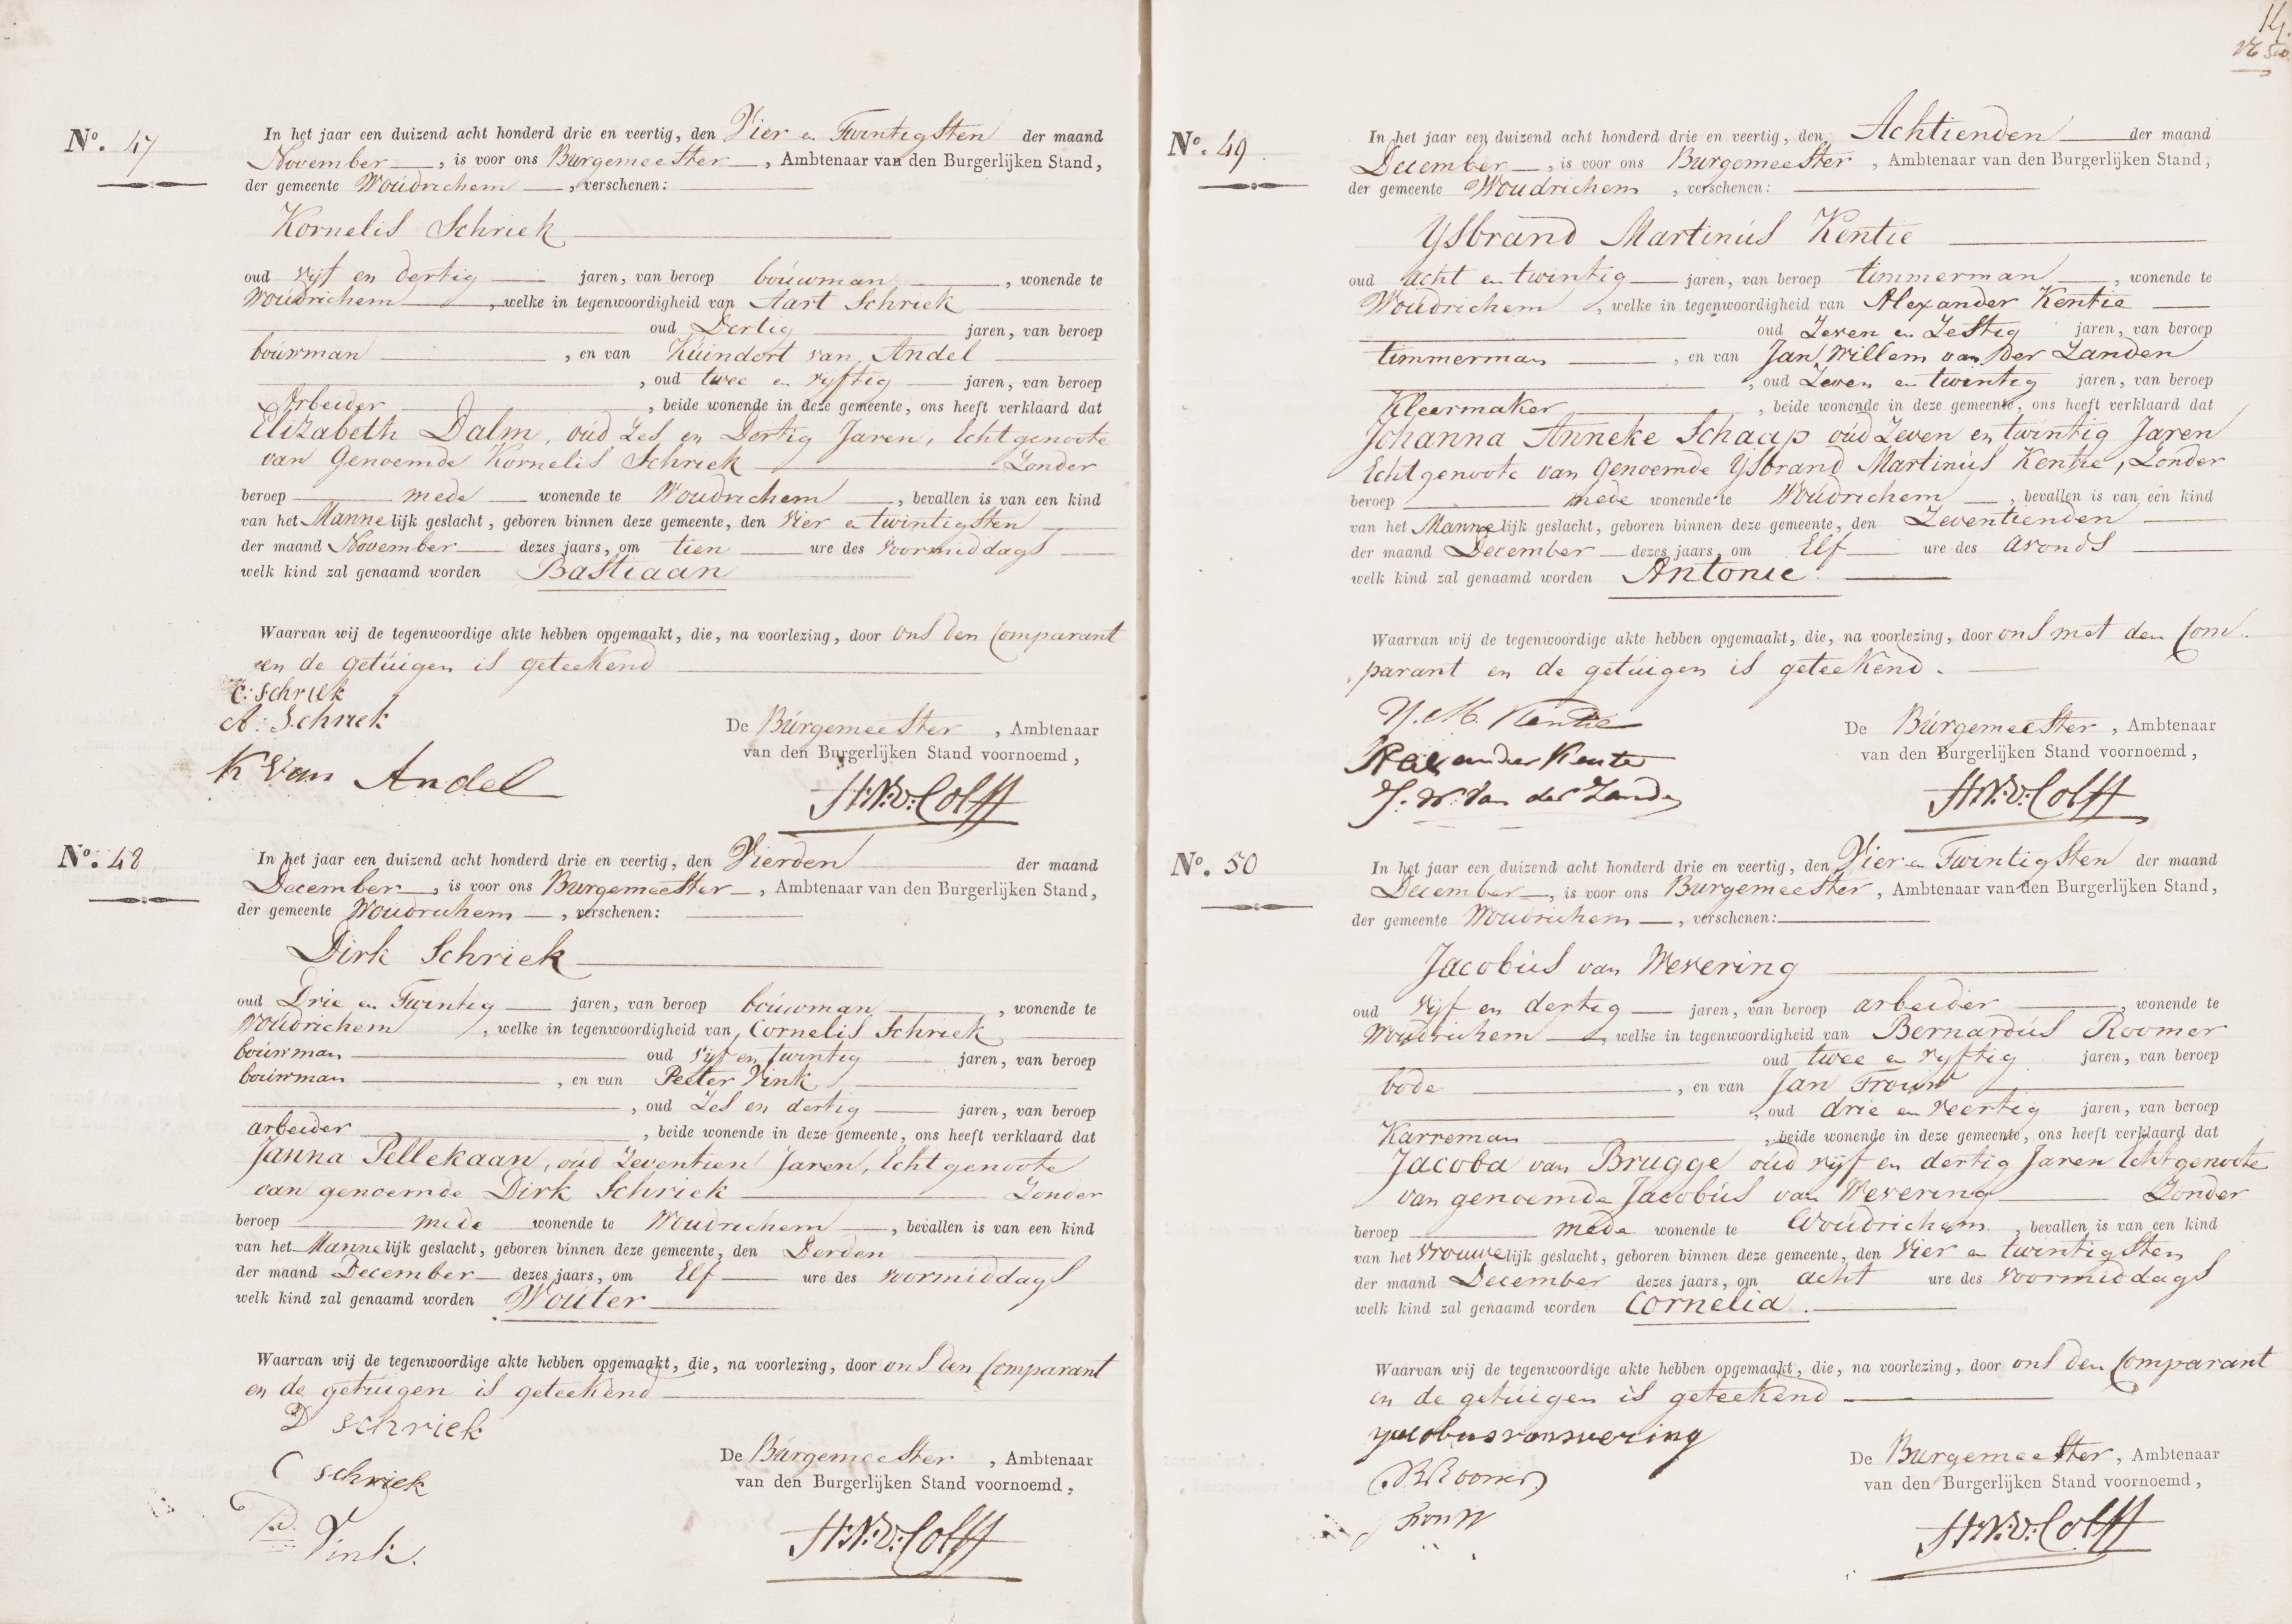 Nº. 47
In het jaar een duizend acht honderd drie en veertig, den Vier en Twintigsten der maand
November, is voor ons Burgemeester, Ambtenaar van den Burgerlijken Stand,
der gemeente Woudrichem, verschenen:
Kornelis Schriek
oud vijf en dertig jaren, van beroep bouwman, wonende te
Woudrichem, welke in tegenwoordigheid van Aart Schriek
oud Dertig jaren, van beroep
bouwman, en van Kuindert van Andel
, oud twee en vyftig jaren, van beroep
Arbeider, beide wonende in deze gemeente, ons heeft verklaard dat
Elizabeth Dalm, oud Zes en Dertig Jaren, Echtgenoote
van Genoemde Kornelis Schriek Zonder
beroep mede wonende te Woudrichem, bevallen is van een kind
van het Mannelijk geslacht, geboren binnen deze gemeente, den Vier en twintigsten
der maand November dezes jaars, om tien ure des voormiddags
welk kind zal genaamd worden Bastiaan
Waarvan wij de tegenwoordige akte hebben opgemaakt, die, na voorlezing, door ons den Comparant
en de getuigen is geteekend
C: Schriek
A: Schriek
K van Andel
De Burgemeester, Ambtenaar
van den Burgerlijken Stand voornoemd,
H:N:v:Colff
Nº. 48
In het jaar een duizend acht honderd drie en veertig, den Vierden der maand
December, is voor ons Burgemeester, Ambtenaar van den Burgerlijken Stand,
der gemeente Woudrichem, verschenen:
Dirk Schriek
oud Drie en Twintig jaren, van beroep bouwman, wonende te
Woudrichem, welke in tegenwoordigheid van Cornelis Schriek
bouwman oud vijf en twintig jaren, van beroep
bouwman, en van Peeter Vink
, oud Zes en dertig jaren, van beroep
arbeider, beide wonende in deze gemeente, ons heeft verklaard dat
Janna Pellekaan, oud Zeventien Jaren, Echtgenoote
van genoemde Dirk Schriek Zonder
beroep mede wonende te Woudrichem, bevallen is van een kind
van het Mannelijk geslacht, geboren binnen deze gemeente, den Derden
der maand December dezes jaars, om Elf ure des voormiddags
welk kind zal genaamd worden Wouter
Waarvan wij de tegenwoordige akte hebben opgemaakt, die, na voorlezing, door ons den Comparant
en de getuigen is geteekend
D schriek
C schriek
Vink.
De Burgemeester, Ambtenaar
van den Burgerlijken Stand voornoemd,
H:N:v:Colff
14.
Nº. 49
In het jaar een duizend acht honderd drie en veertig, den Achtienden der maand
December, is voor ons Burgemeester, Ambtenaar van den Burgerlijken Stand,
der gemeente Woudrichem, verschenen:
Ysbrand Martinus Kentie
oud acht en twintig jaren, van beroep timmerman, wonende te
Woudrichem, welke in tegenwoordigheid van Alexander Kentie
oud Zeven en Zestig jaren, van beroep
timmerman, en van Jan Willem van der Zanden
, oud Zeven en twintig jaren, van beroep
Kleermaker, beide wonende in deze gemeente, ons heeft verklaard dat
Johanna Anneke Schaap oud Zeven en twintig Jaren
Echtgenoote van Genoemde Ysbrand Martinus Kentie, Zonder
beroep mede wonende te Woudrichem, bevallen is van een kind
van het Mannelijk geslacht, geboren binnen deze gemeente, den Zeventienden
der maand December dezes jaars, om Elf ure des avonds
welk kind zal genaamd worden Antonie.
Waarvan wij de tegenwoordige akte hebben opgemaakt, die, na voorlezing, door ons met den Com-
parant en de getuigen is geteekend.
Y. M. Kentie
Alexander Kentie
J. W. van der Zanden
De Burgemeester, Ambtenaar
van den Burgerlijken Stand voornoemd,
H:N:v:Colff
Nº. 50
In het jaar een duizend acht honderd drie en veertig, den Vier en Twintigsten der maand
December, is voor ons Burgemeester, Ambtenaar van den Burgerlijken Stand,
der gemeente Woudrichem, verschenen:
Jacobus van Wevering
oud vijf en dertig jaren, van beroep arbeider, wonende te
Woudrichem, welke in tegenwoordigheid van Bernardus Roomer
oud twee en vyftig jaren, van beroep
bode, en van Jan Trouw
, oud drie en veertig jaren, van beroep
Karreman, beide wonende in deze gemeente, ons heeft verklaard dat
Jacoba van Brugge oud vijf en dertig Jaren Echtgenoote
van genoemde Jacobus van Wevering Zonder
beroep mede wonende te Woudrichem, bevallen is van een kind
van het vrouwelijk geslacht, geboren binnen deze gemeente, den Vier en twintigsten
der maand December dezes jaars, om acht ure des voormiddags
welk kind zal genaamd worden Cornelia.
Waarvan wij de tegenwoordige akte hebben opgemaakt, die, na voorlezing, door ons den Comparant
en de getuigen is geteekend
B Roomer
J Trouw
De Burgemeester, Ambtenaar
van den Burgerlijken Stand voornoemd,
H:N:v:Colff